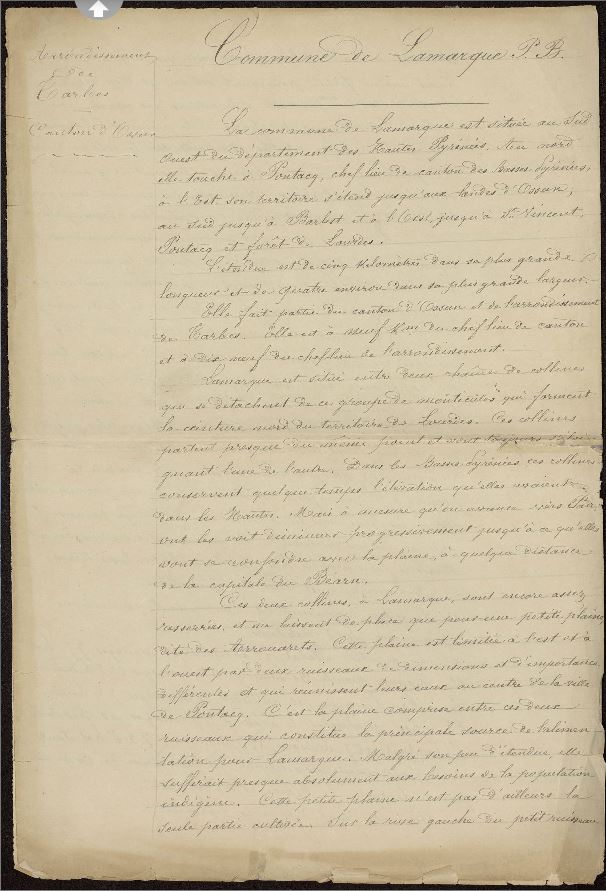 Arrondissement
de
Tarbes
Canton d'Ossun
Commune de Lamarque P. B.
La commune de Lamarque est située au Sud
Ouest du département des Hautes Pyrénées. Au nord
elle touche à Pontacq, chef lieu de canton des Basses Pyrénées,
à l'Est son territoire s'étend jusqu'aux landes d'Ossun,
au Sud jusqu'à Barlest et à l'Oest, jusqu'à St. Vincent,
Pontacq et forêt de Lourdes.
L'étendue est de cinq kilomètres dans sa plus grande
longueur et de quatre environ dans sa plus grande largeur.
Elle fait partie du canton d'Ossun et de l'arrondissement
de Tarbes. Elle est à neuf km du chef lieu de canton
et à dix neuf du chef lieu de l'arrondissement.
Lamarque est situé entre deux chaînes de collines
qui se détachent de ce groupe de monticules qui forment
la ceinture nord du territoire de Lourdes. Ces collines
partent presque du même point et vont toujours s'éloi
gnant l'une de l'autre. Dans les Basses Pyrénées ces collines
conservent quelque temps l'élévation qu'elles avaient
dans les Hautes. Mais à mesure qu'on avance vers Pau,
on les voit diminuer progressivement jusqu'à ce qu'elles
vont se confondre avec la plaine, à quelque distance
de la capitale du Béarn.
Ces deux collines, à Lamarque, sont encore assez
resserrées, et ne laissent de place que pour une petite plaine
dite des terrouarets. Cette plaine est limitée à l'est et à
l'ouest par deux ruisseaux de dimensions et d'importance
différentes et qui réunissent leurs eaux au centre de la ville
de Pontacq. C'est la plaine comprise entre ces deux
ruisseaux qui constitue la principale source de l'alimen
tation pour Lamarque. Malgré son peu d'étendue, elle
suffirait presque absolument aux besoins de la population
indigène. Cette petite plaine n'est pas d'ailleurs la
seule partie cultivée. Sur la rive gauche du petit ruisseau